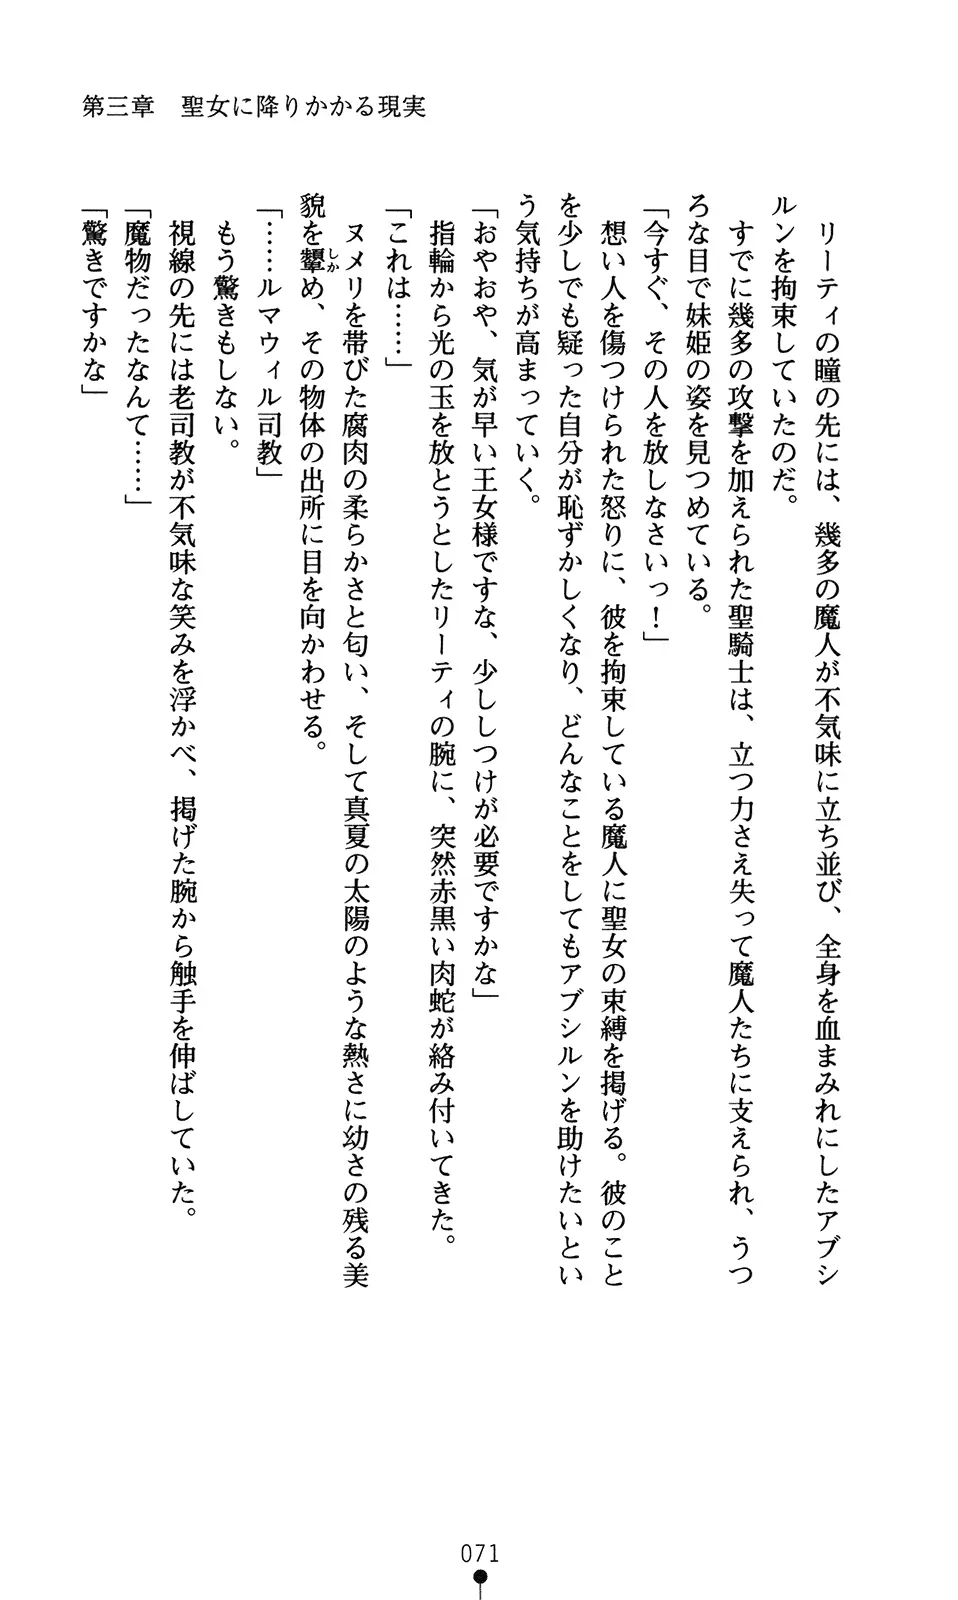 第三章　聖女に降りかかる現実
　リーティの瞳の先には、幾多の魔人が不気味に立ち並び、全身を血まみれにしたアブシ
ルンを拘束していたのだ。
　すでに幾多の攻撃を加えられた聖騎士は、立つ力さえ失って魔人たちに支えられ、うつ
ろな目で妹姫の姿を見つめている。
「今すぐ、その人を放しなさいっ！」
　想い人を傷つけられた怒りに、彼を拘束している魔人に聖女の束縛を掲げる。彼のこと
を少しでも疑った自分が恥ずかしくなり、どんなことをしてもアブシルンを助けたいとい
う気持ちが高まっていく。
「おやおや、気が早い王女様ですな、少ししつけが必要ですかな」
　指輪から光の玉を放とうとしたリーティの腕に、突然赤黒い肉蛇が絡み付いてきた。
「これは……」
　ヌメリを帯びた腐肉の柔らかさと匂い、そして真夏の太陽のような熱さに幼さの残る美
貌を顰しかめ、その物体の出所に目を向かわせる。
「……ルマウィル司教」
　もう驚きもしない。
　視線の先には老司教が不気味な笑みを浮かべ、掲げた腕から触手を伸ばしていた。
「魔物だったなんて……」
「驚きですかな」
071